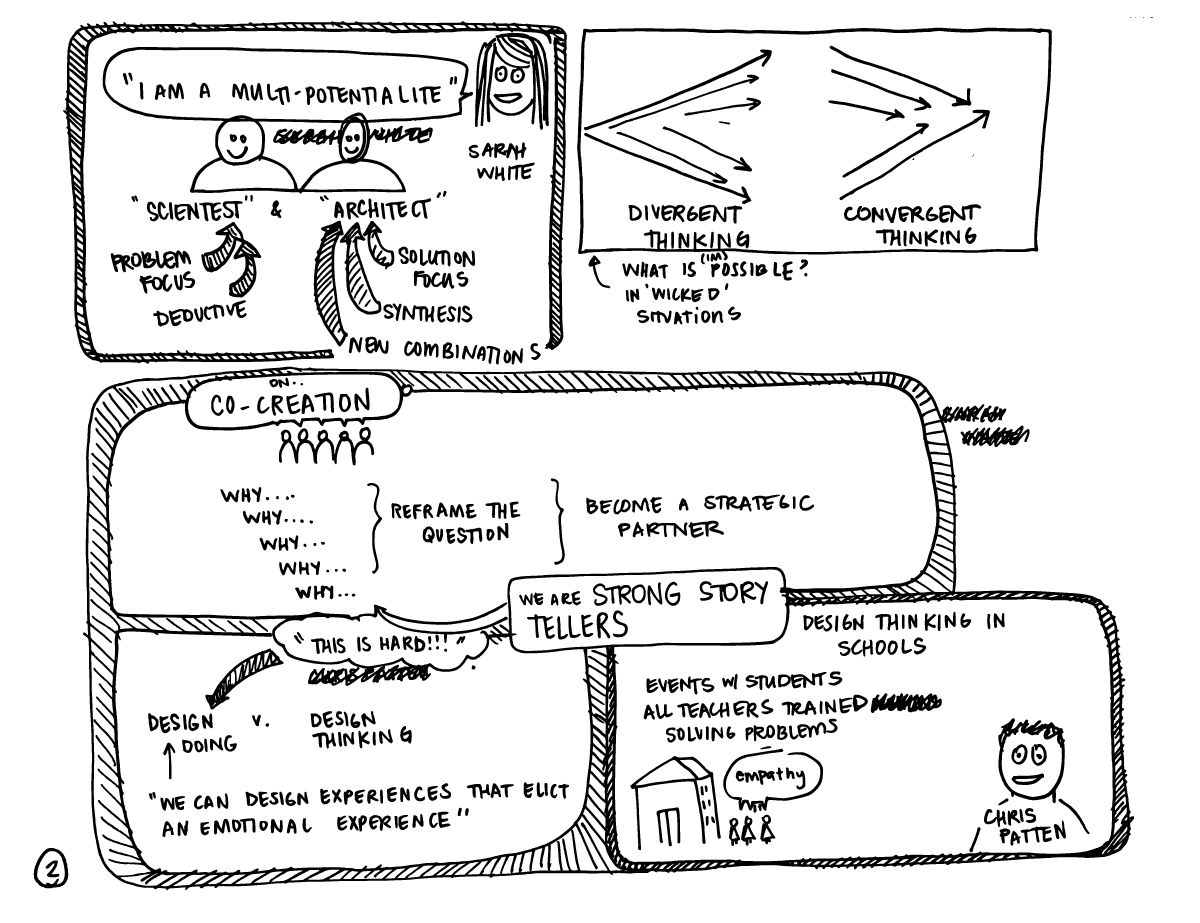 "I AM A MULTI-POTENTIALITE"
SARAH
WHITE
"SCIENTEST" & "ARCHITECT"
PROBLEM
FOCUS
DEDUCTIVE
SOLUTION
FOCUS
SYNTHESIS
NEW COMBINATIONS
DIVERGENT
THINKING
CONVERGENT
THINKING
WHAT IS (IM)POSSIBLE?
IN 'WICKED'
SITUATIONS
ON..
CO-CREATION
WHY....
WHY....
WHY...
WHY...
WHY...
REFRAME THE
QUESTION
BECOME A STRATEGIC
PARTNER
WE ARE STRONG STORY
TELLERS
"THIS IS HARD!!!"
DESIGN
DOING
V.
DESIGN
THINKING
"WE CAN DESIGN EXPERIENCES THAT ELICT
AN EMOTIONAL EXPERIENCE"
DESIGN THINKING IN
SCHOOLS
EVENTS W/ STUDENTS
ALL TEACHERS TRAINED
SOLVING PROBLEMS
empathy
CHRIS
PATTEN
2